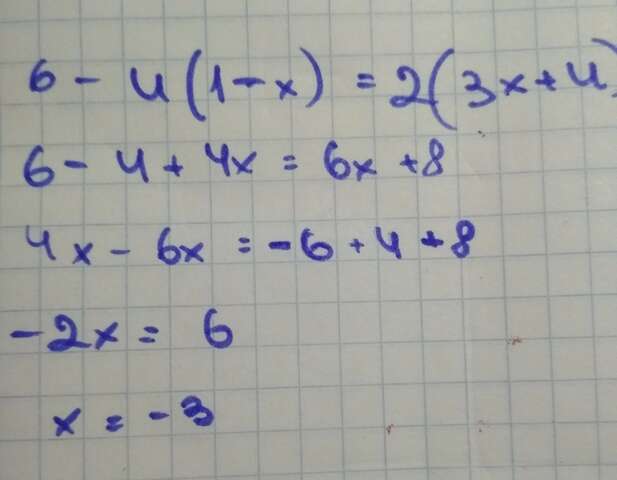 6 - 4(1-x) = 2(3x+4)
6 - 4 + 4x = 6x +8
4x - 6x = -6 + 4 + 8
-2x = 6
x = -3